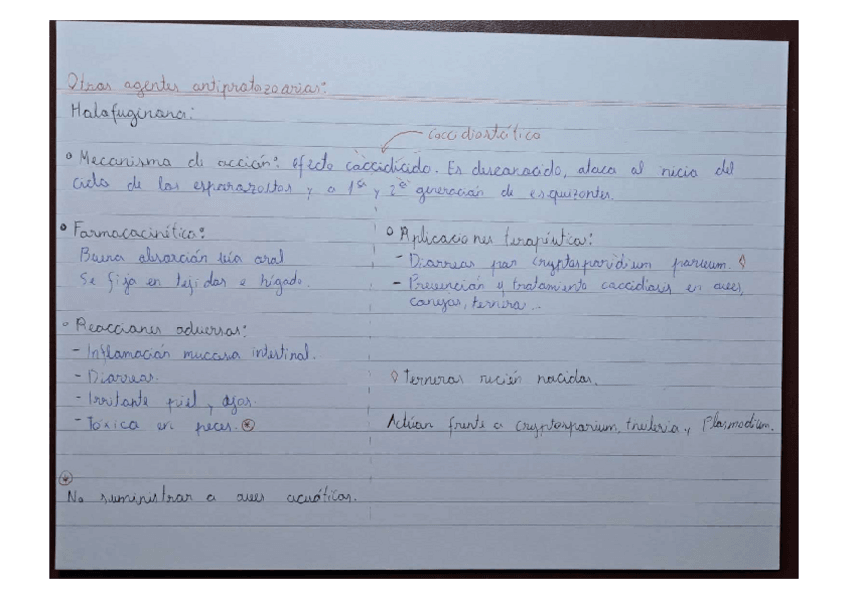 Otros agentes antiprotozoarios:
Halofuginona:
coccidiostático
° Mecanismo de acción: efecto coccidicido. Es desconocido, ataca al inicio del
ciclo de los esporozoitos y a 1ª y 2ª generación de esquizontes.
° Farmacocinética:
Buena absorción vía oral
Se fija en tejidos e hígado.
° Reacciones adversas:
- Inflamación mucosa intestinal.
- Diarreas.
- Irritante piel y ojos.
- Tóxica en peces. *
* No suministrar a aves acuáticas.
° Aplicaciones terapéutica:
- Diarreas por cryptosporidium parvum. ◊
- Prevención y tratamiento coccidiosis en aves,
conejos, ternera...
◊ Terneros recién nacidos.
Actúan frente a cryptosporium, theileria y Plasmodium.